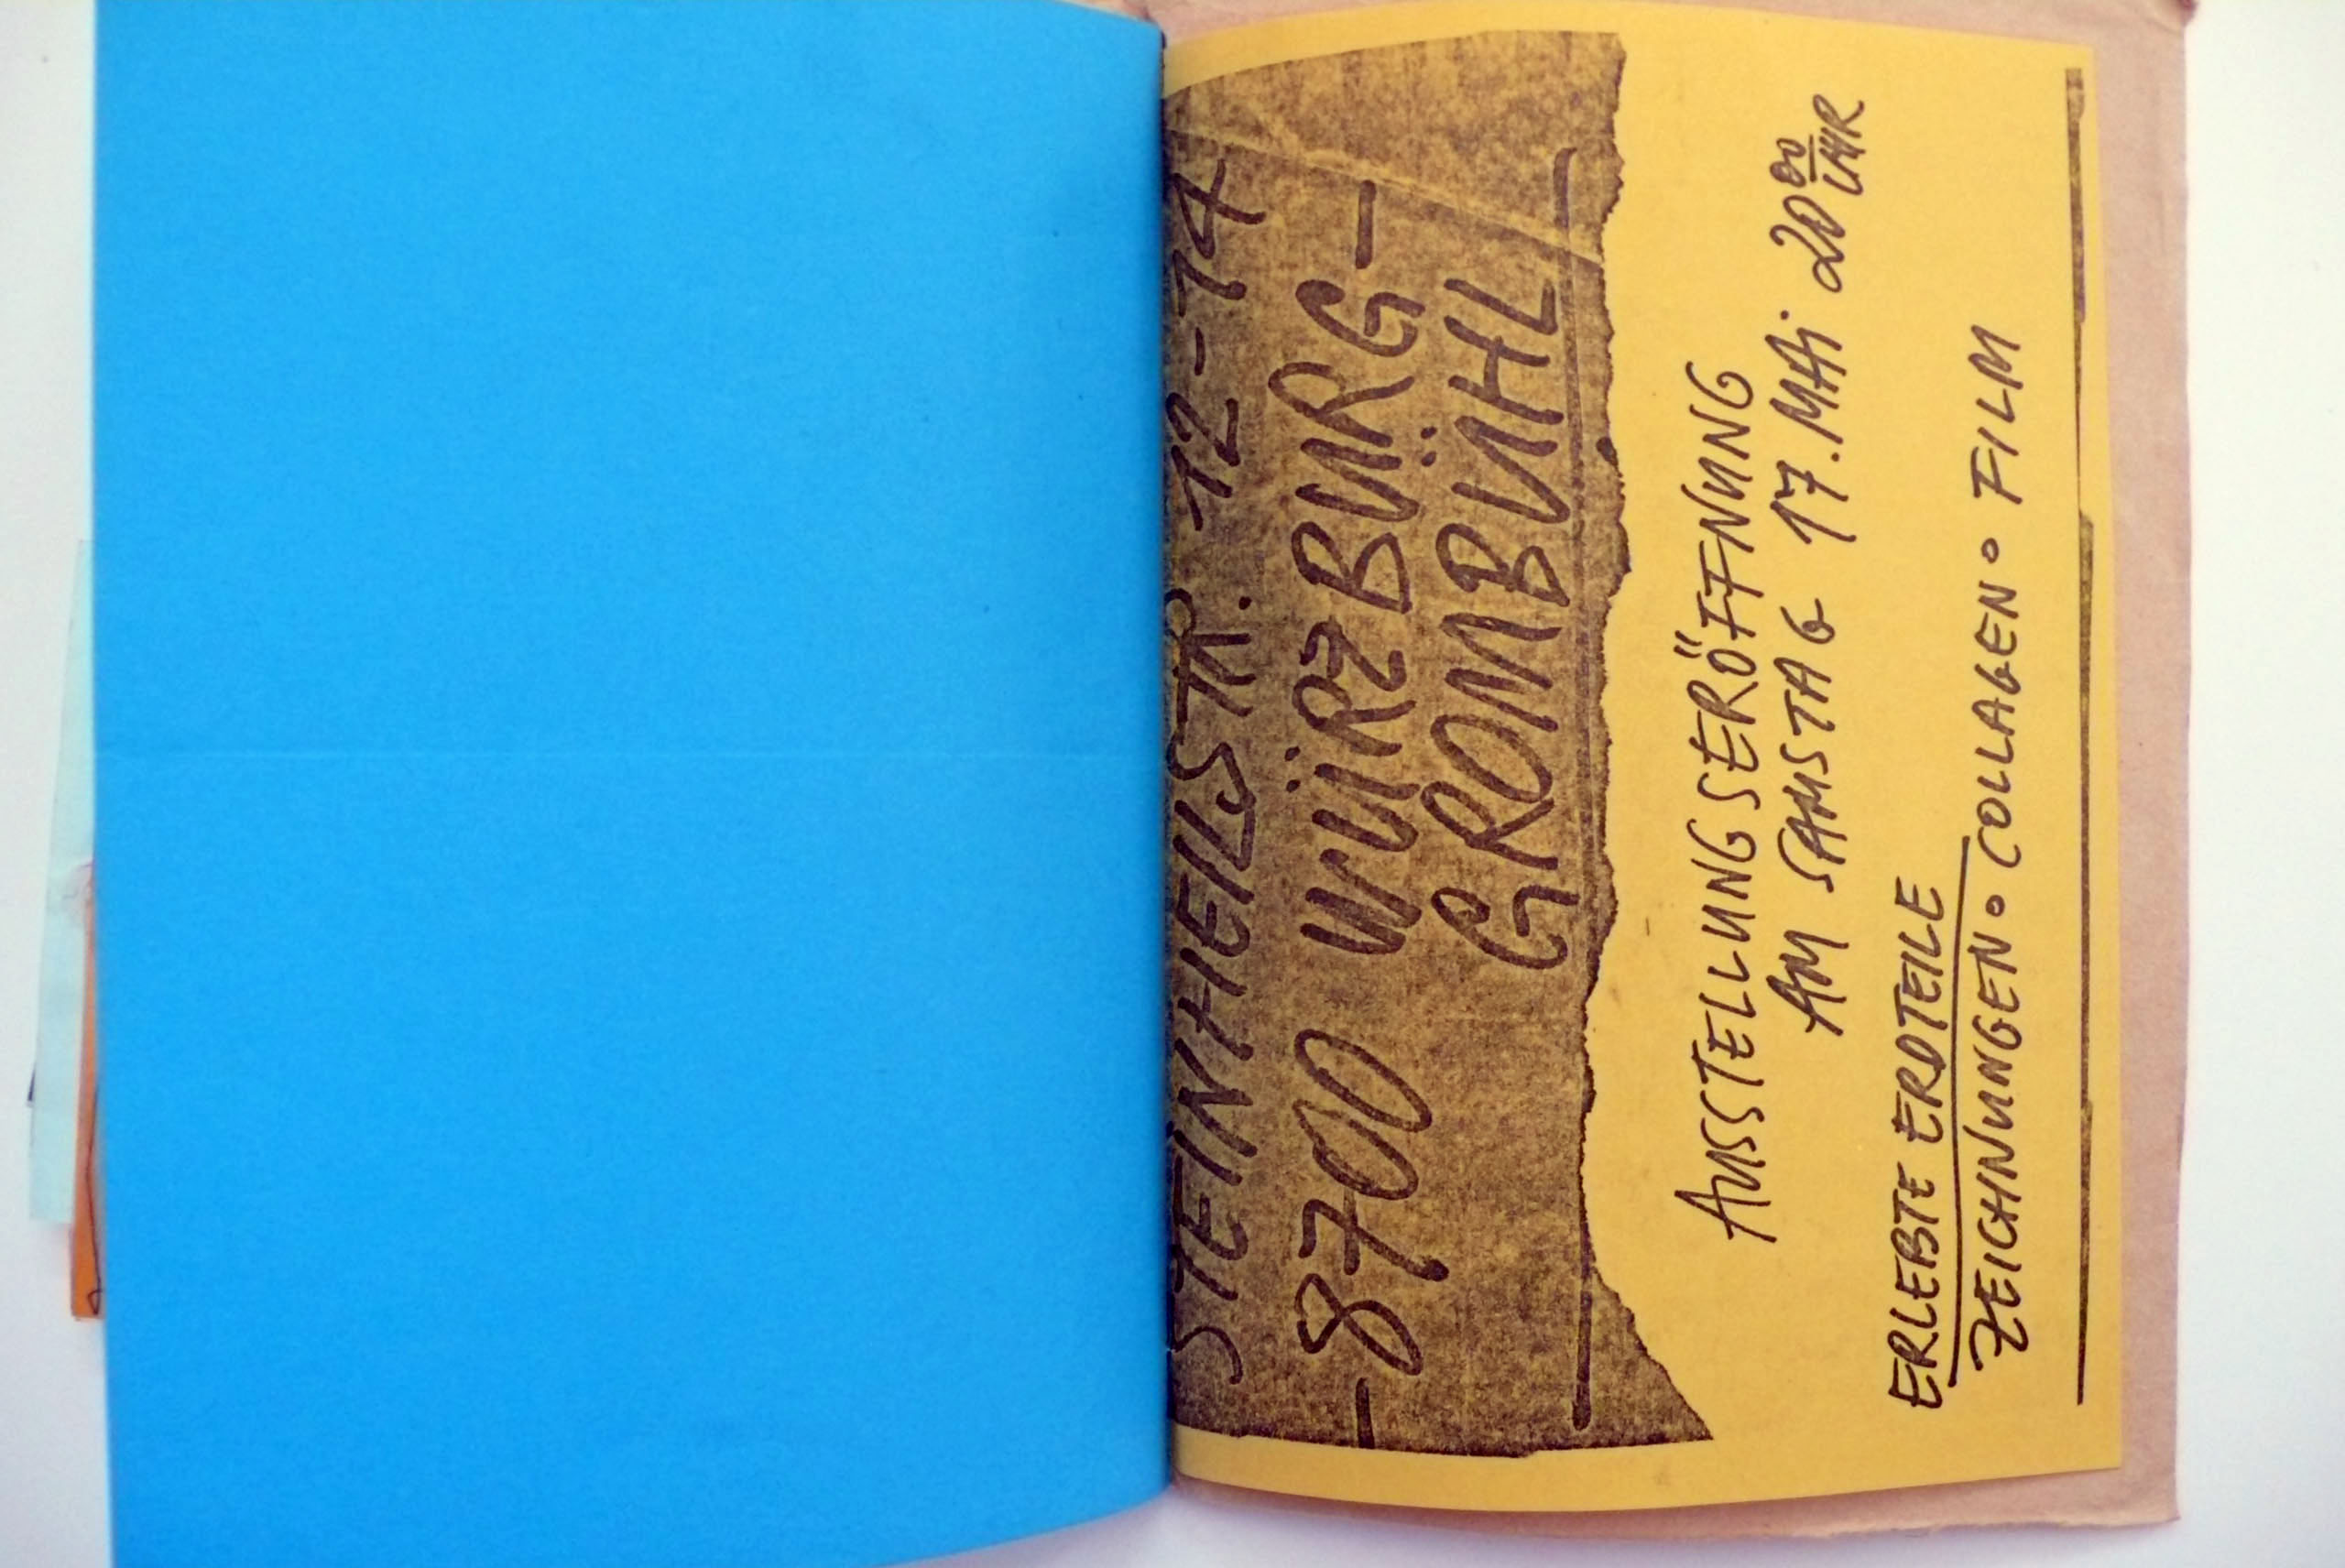 STEINHEILSTR. 12-14
- 8700 WÜRZBURG -
GROMBÜHL
AUSSTELLUNGSERÖFFNUNG
AM SAMSTAG 17. MAi 20 00 UHR
ERLEBTE ERDTEILE
ZEICHNUNGEN ∘ COLLAGEN ∘ FILM